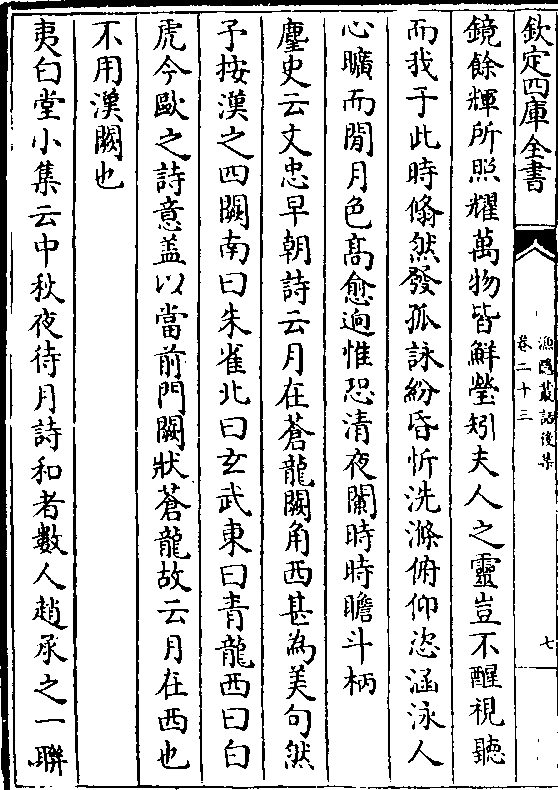 欽定四庫全書
漁隠叢話後集
卷二十三
七
鏡餘輝所照耀萬物皆鮮瑩矧夫人之靈豈不醒視聽
而我于此時翛然發孤詠紛昏忻洗滌俯仰恣涵泳人
心曠而閒月色高愈逈惟恐清夜闌時時瞻斗柄
麈史云文忠早朝詩云月在蒼龍闕角西甚為美句然
予按漢之四闕南曰朱雀北曰玄武東曰青龍西曰白
虎今歐之詩意盖以當前門闕狀蒼龍故云月在西也
不用漢闕也
夷白堂小集云中秋夜待月詩和者數人趙承之一聯